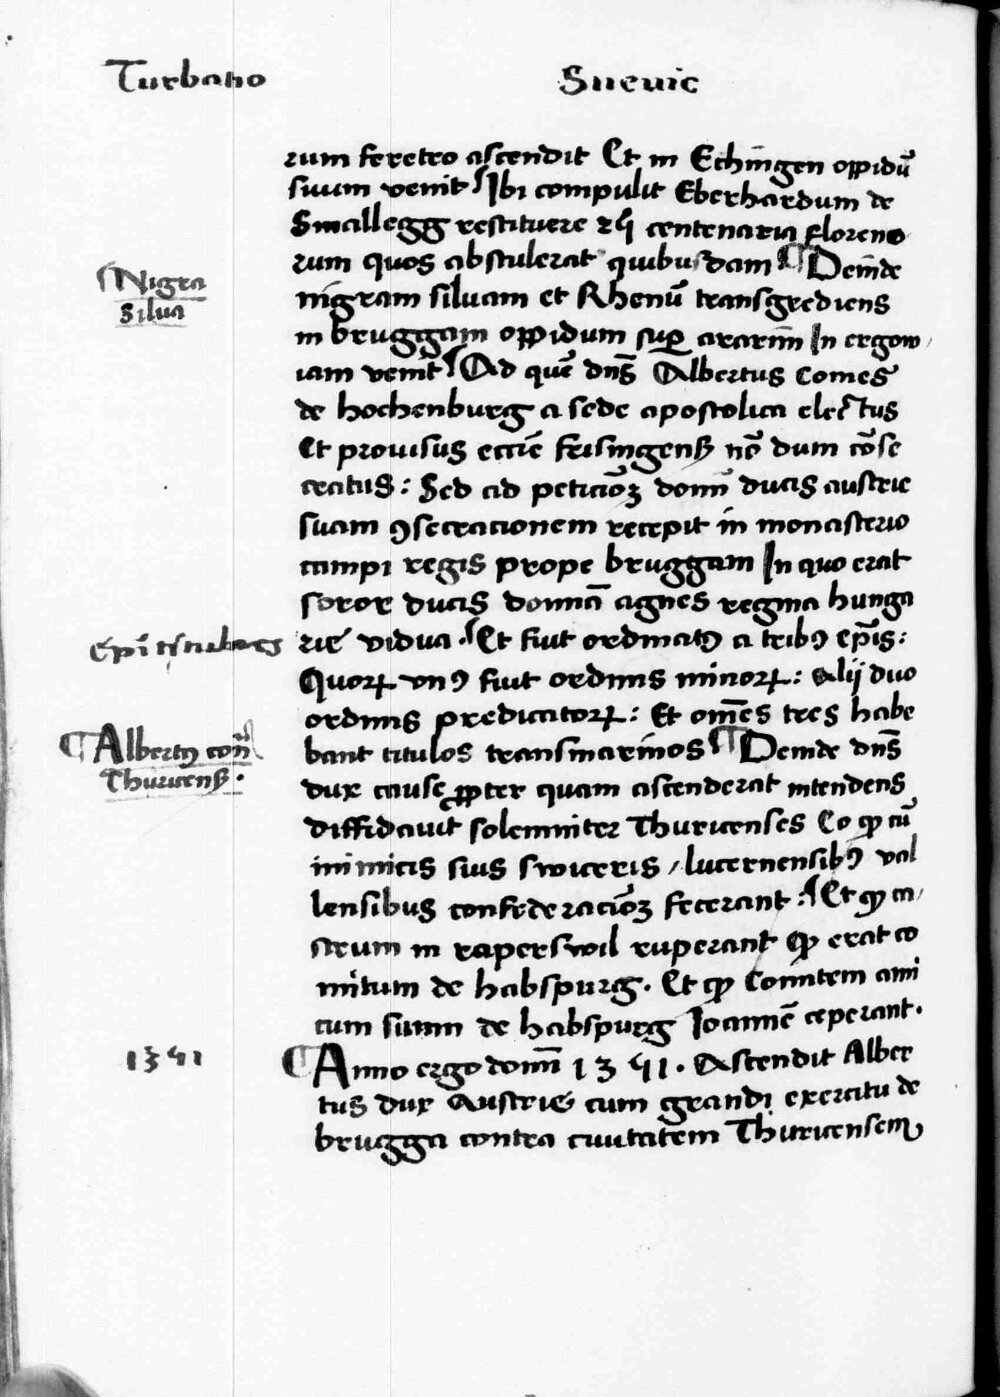 Turbatio Sueuic
rum feretro ascendit Et in Echingen oppidū
suum venit Ibi compulit Eberhardum de
Smallegg restituere xij centenaria floreno
rum quos abstulerat quibusdam ¶ Deinde
Nigra
Silua
nigram siluam et Rhenū transgrediens
in bruggam oppidum sup ararim In ergow
iam venit Ad quē dn̄s Albertus Comes
de hochenburg a sede apostolica electus
Et prouisus eccīe frisingens̄ nō dum cōse
cratus : Sed ad peticiōȝ domī ducis austrie
suam ꝯsecracionem recepit in monasterio
campi regis prope bruggam In quo erat
soror ducis domnā agnes regina hunga
rie vidua . Et fuit ordinatꝰ a tribꝰ ep̄is :
Quoꝝ vnꝰ fuit ordinis minoꝝ : alij duo
ordinis predicatoꝝ : Et om̄es tres habe
¶ Albertꝰ con̄
Thuricens̄ .
bant titulos transmarinos ¶ Deinde dn̄s
dux cause ꝓpter quam ascenderat intendens
diffidauit solemniter Thuricenses Eo ꝙ cū
inimicis suis swiceris / lucernensibꝰ val
lensibus confederaciōȝ fecerant : Et ꝙ ca
strum in raperswil ruperant ꝙ erat co
mitum de habspurg . Et ꝙ Comitem ami
cum suum de habspurg Ioannē ceperant .
1351
¶ Anno ergo domī 1351 . Ascendit Alber
tus dux Austrie cum grandi exercitu de
brugga contra ciuitatem Thuricensem